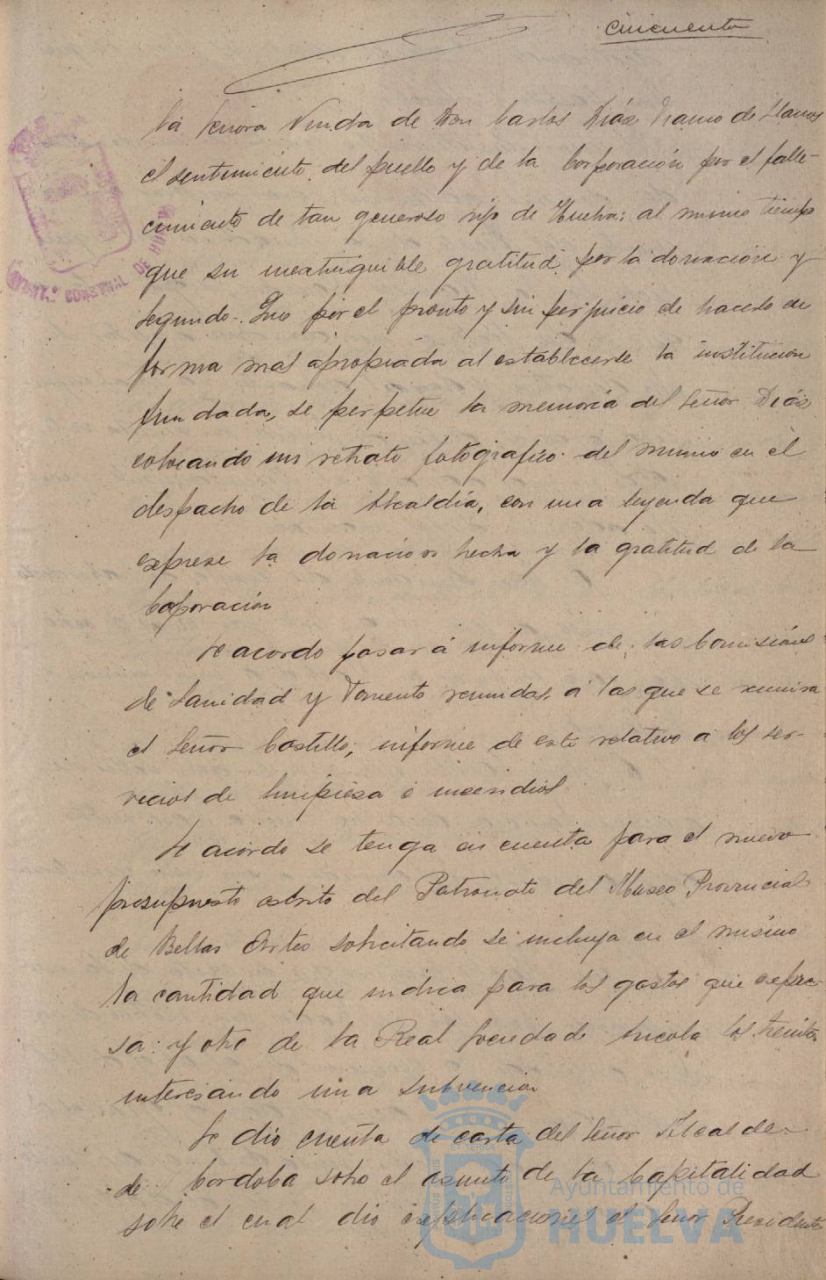 cincuenta
la señora Viuda de Don Carlos Díaz Franco de Llanos
el sentimiento del pueblo y de la Corporación por el falle-
cimiento de tan generoso hijo de Huelva: al mismo tiempo
que su inextinguible gratitud por la donación y
segundo. Que por el pronto y sin perjuicio de hacerlo en
forma mas apropiada al establecerse la institucion
fundada, se perpetue la memoria del Señor Díaz
colocando un retrato fotografico del mismo en el
despacho de la Alcaldía, con una leyenda que
exprese la donacion hecha y la gratitud de la
Coporación
Se acordo pasar á informe de las Comisiones
de Sanidad y Fomento reunidas, a las que se reunira
el Señor Castillo, informe de este relativo a los ser-
vicios de limpieza e incendios
Se acordo se tenga en cuenta para el nuevo
presupuesto escrito del Patronato del Museo Provincial
de Bellas Artes solicitando se incluya en el mismo
la cantidad que indica para los gastos que expre-
sa: y otro de la Real Sociedad
interesando una subvencion
Se dio cuenta de carta del Señor Alcalde
de Cordoba sobre el asunto de la Capitalidad
sobre el cual dio explicaciones el Señor Presidente
Ayuntamiento de
HUELVA